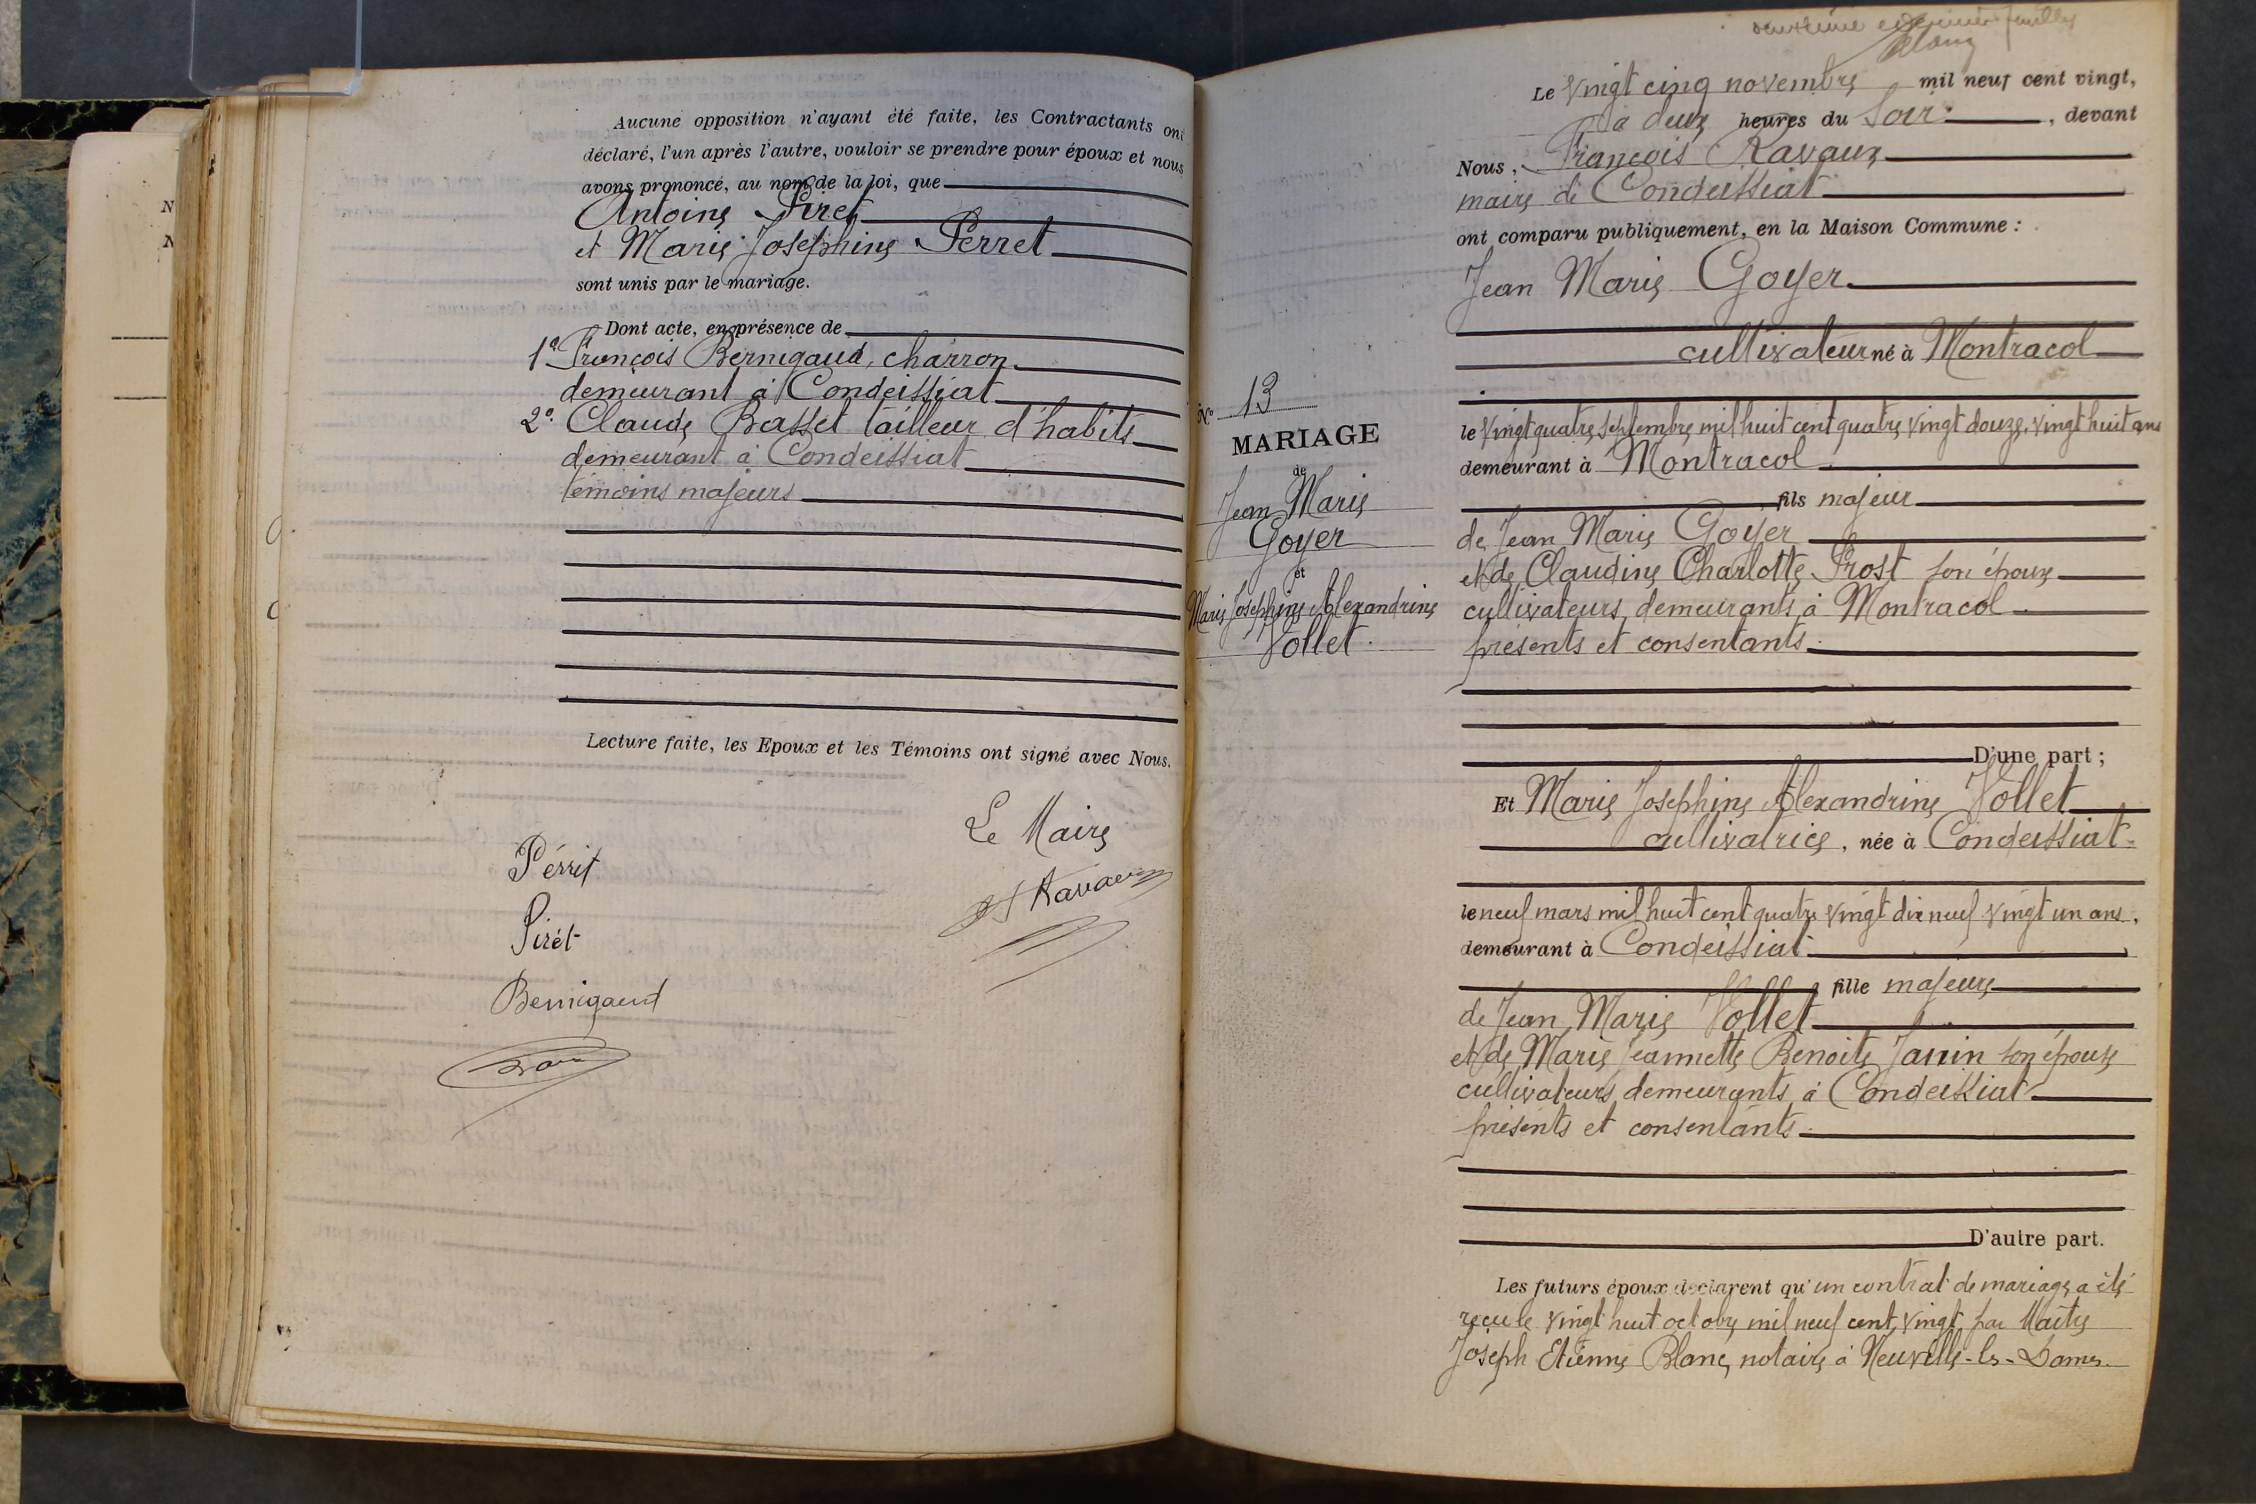 Aucune opposition n'ayant été faite, les Contractants ont
déclaré, l'un après l'autre, vouloir se prendre pour époux et nous
avons prononcé, au nom de la loi, que
Antoine Piret
et Marie Josephine Perret
sont unis par le mariage.
Dont acte, en présence de
1º François Bernigaud, charron
demeurant à Condeissiat
2º Claude Basset tailleur d'habits
demeurant à Condeissiat
témoins majeurs
Lecture faite, les Epoux et les Témoins ont signé avec Nous.
Le Maire
Pérrit
Ravaux
Pirét
Bernigaud
feuillet
Le vingt cinq novembre mil neuf cent vingt,
à deux heures du soir, devant
Nous, François Ravaux
maire de Condeissiat
ont comparu publiquement, en la Maison Commune :
Jean Marie Goyer
cultivateur né à Montracol
le vingt quatre septembre mil huit cent quatre vingt douze, vingt huit ans
demeurant à Montracol
fils majeur
de Jean Marie Goyer
et de Claudine Charlotte Prost son épouse
cultivateurs demeurants à Montracol
présents et consentants
D'une part ;
Nº 13
MARIAGE
de
Jean Marie
Goyer
et
Marie Josephine Alexandrine
Vollet
Et Marie Josephine Alexandrine Vollet
cultivatrice, née à Condeissiat
le neuf mars mil huit cent quatre vingt dix neuf vingt un ans,
demeurant à Condeissiat
fille majeure
de Jean Marie Vollet
et de Marie Jeannette Benoite Janin son épouse
cultivateurs demeurants à Condeissiat
présents et consentants
D'autre part.
Les futurs époux déclarent qu'un contrat de mariage a été
reçu le vingt huit octobre mil neuf cent vingt par Maître
Joseph Etienne Blanc, notaire à Neuville-les-Dames